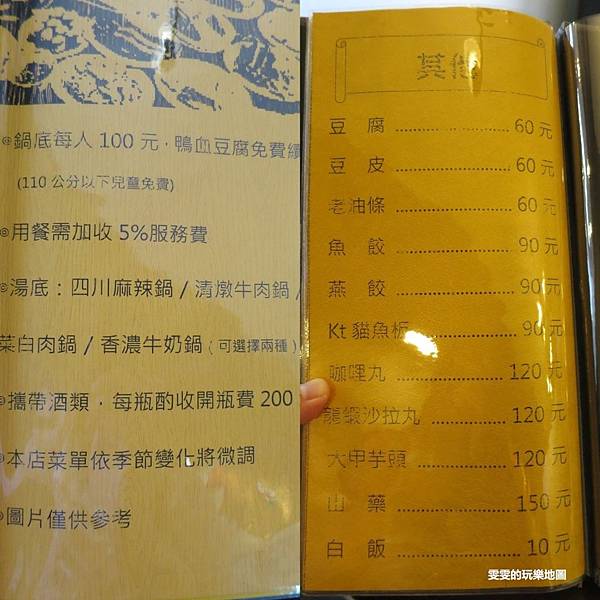 ◎鍋底每人 100 元，鴨血豆腐免費續
(110 公分以下兒童免費)
◎用餐需加收 5%服務費
◎湯底：四川麻辣鍋 / 清燉牛肉鍋 /
菜白肉鍋 / 香濃牛奶鍋 ( 可選擇兩種 )
◎攜帶酒類，每瓶酌收開瓶費 200
◎本店菜單依季節變化將微調
◎圖片僅供參考
其他
豆 腐 60 元
豆 皮 60 元
老油條 60 元
魚 餃 90 元
燕 餃 90 元
Kt 貓魚板 90 元
咖哩丸 120 元
龍蝦沙拉丸 120 元
大甲芋頭 120 元
山 藥 150 元
白 飯 10 元
雯雯的玩樂地圖